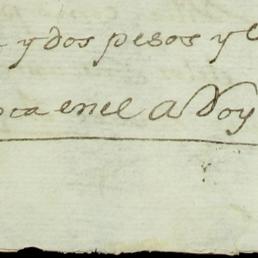 y dos pesos y
en el A Doy